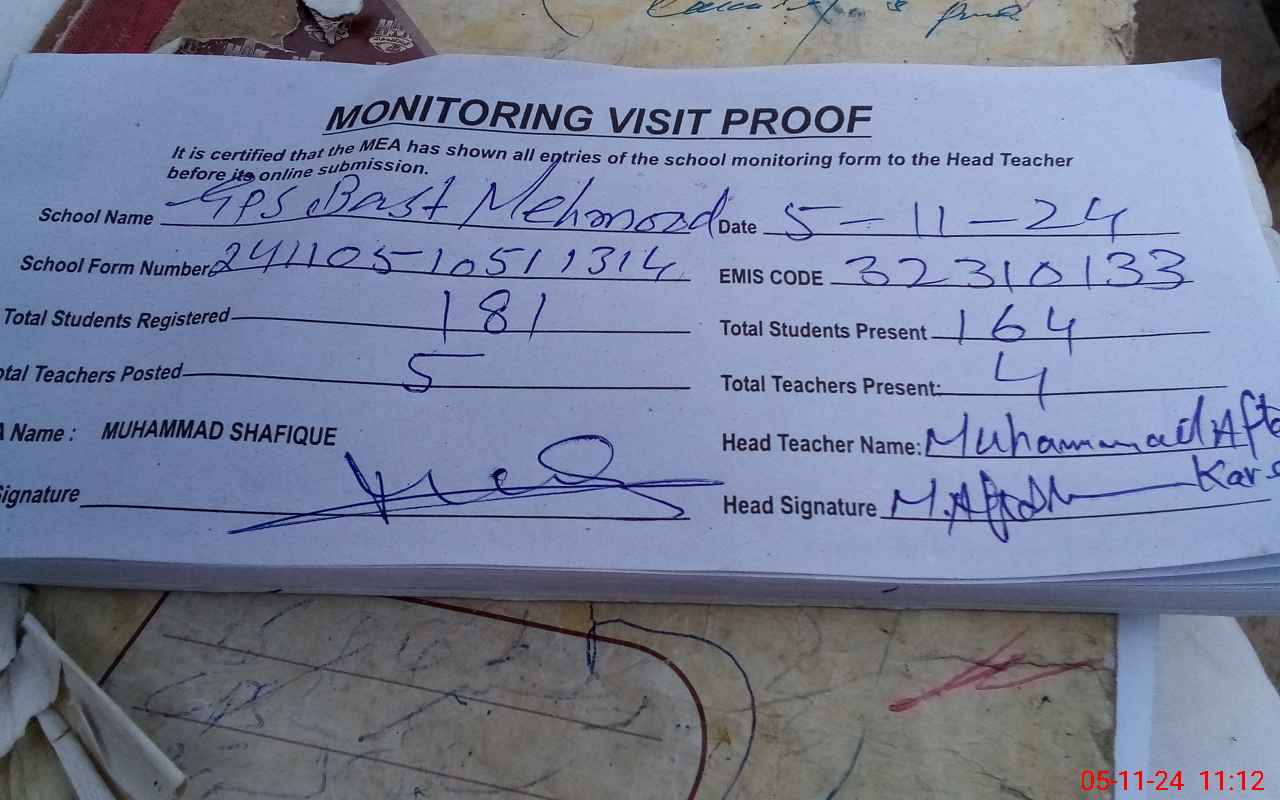 MONITORING VISIT PROOF
It is certified that the MEA has shown all entries of the school monitoring form to the Head Teacher
before its online submission.
School Name GPS Bast Mehmood Date 5-11-24
School Form Number 241105-10511314 EMIS CODE 32310133
Total Students Registered 181 Total Students Present 164
otal Teachers Posted 5 Total Teachers Present: 4
A Name : MUHAMMAD SHAFIQUE Head Teacher Name: Muhammad Afta
Signature Head Signature M. Aftab
05-11-24 11:12